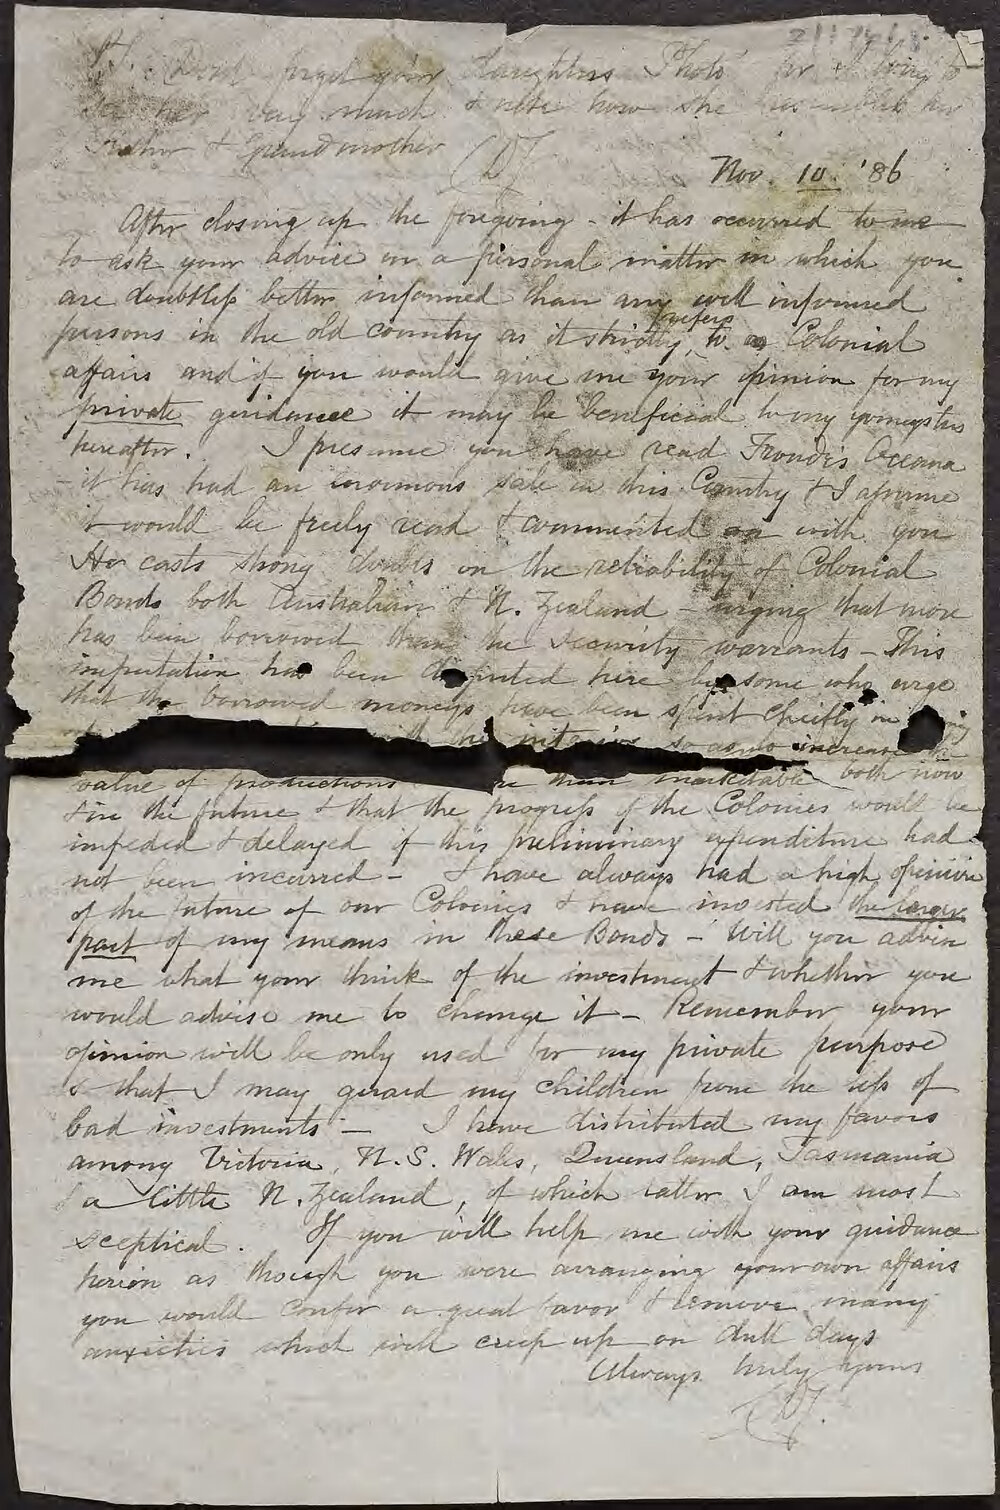 P.S. Dont forget your daughters Photo for I long to
see her very much & note how she resembles her
Father & Grandmother
Nov. 10. '86
After closing up the foregoing - it has occurred to me
to ask your advice on a personal matter in which you
are doubtless better informed than any well informed
persons in the old country as it strictly refers to Colonial
affairs and if you would give me your opinion for my
private guidance it may be beneficial to my youngsters
hereafter. I presume you have read Froude's Oceana
- it has had an enormous sale in this Country & I assume
it would be freely read & commented on with you
He casts strong doubts on the reliability of Colonial
Bonds both Australian & N. Zealand - urging that more
has been borrowed than the security warrants - This
imputation has been disputed here by some who urge
that the borrowed moneys have been spent chiefly in
so as to increase the
value of productions marketable both now
& in the future & that the progress of the Colonies would be
impeded & delayed if this preliminary expenditure had
not been incurred - I have always had a high opinion
of the future of our Colonies & have invested the larger
part of my means in these Bonds - Will you advise
me what your think of the investment & whether you
would advise me to change it - Remember your
opinion will be only used for my private purpose
& that I may guard my children from the loss of
bad investments - I have distributed my favors
among Victoria, N.S. Wales, Queensland, Tasmania
& a little N. Zealand, of which latter I am most
sceptical. If you will help me with your guidance
herein as though you were arranging your own affairs
you would confer a great favor & remove many
anxieties which will creep up on dull days
Always truly yours